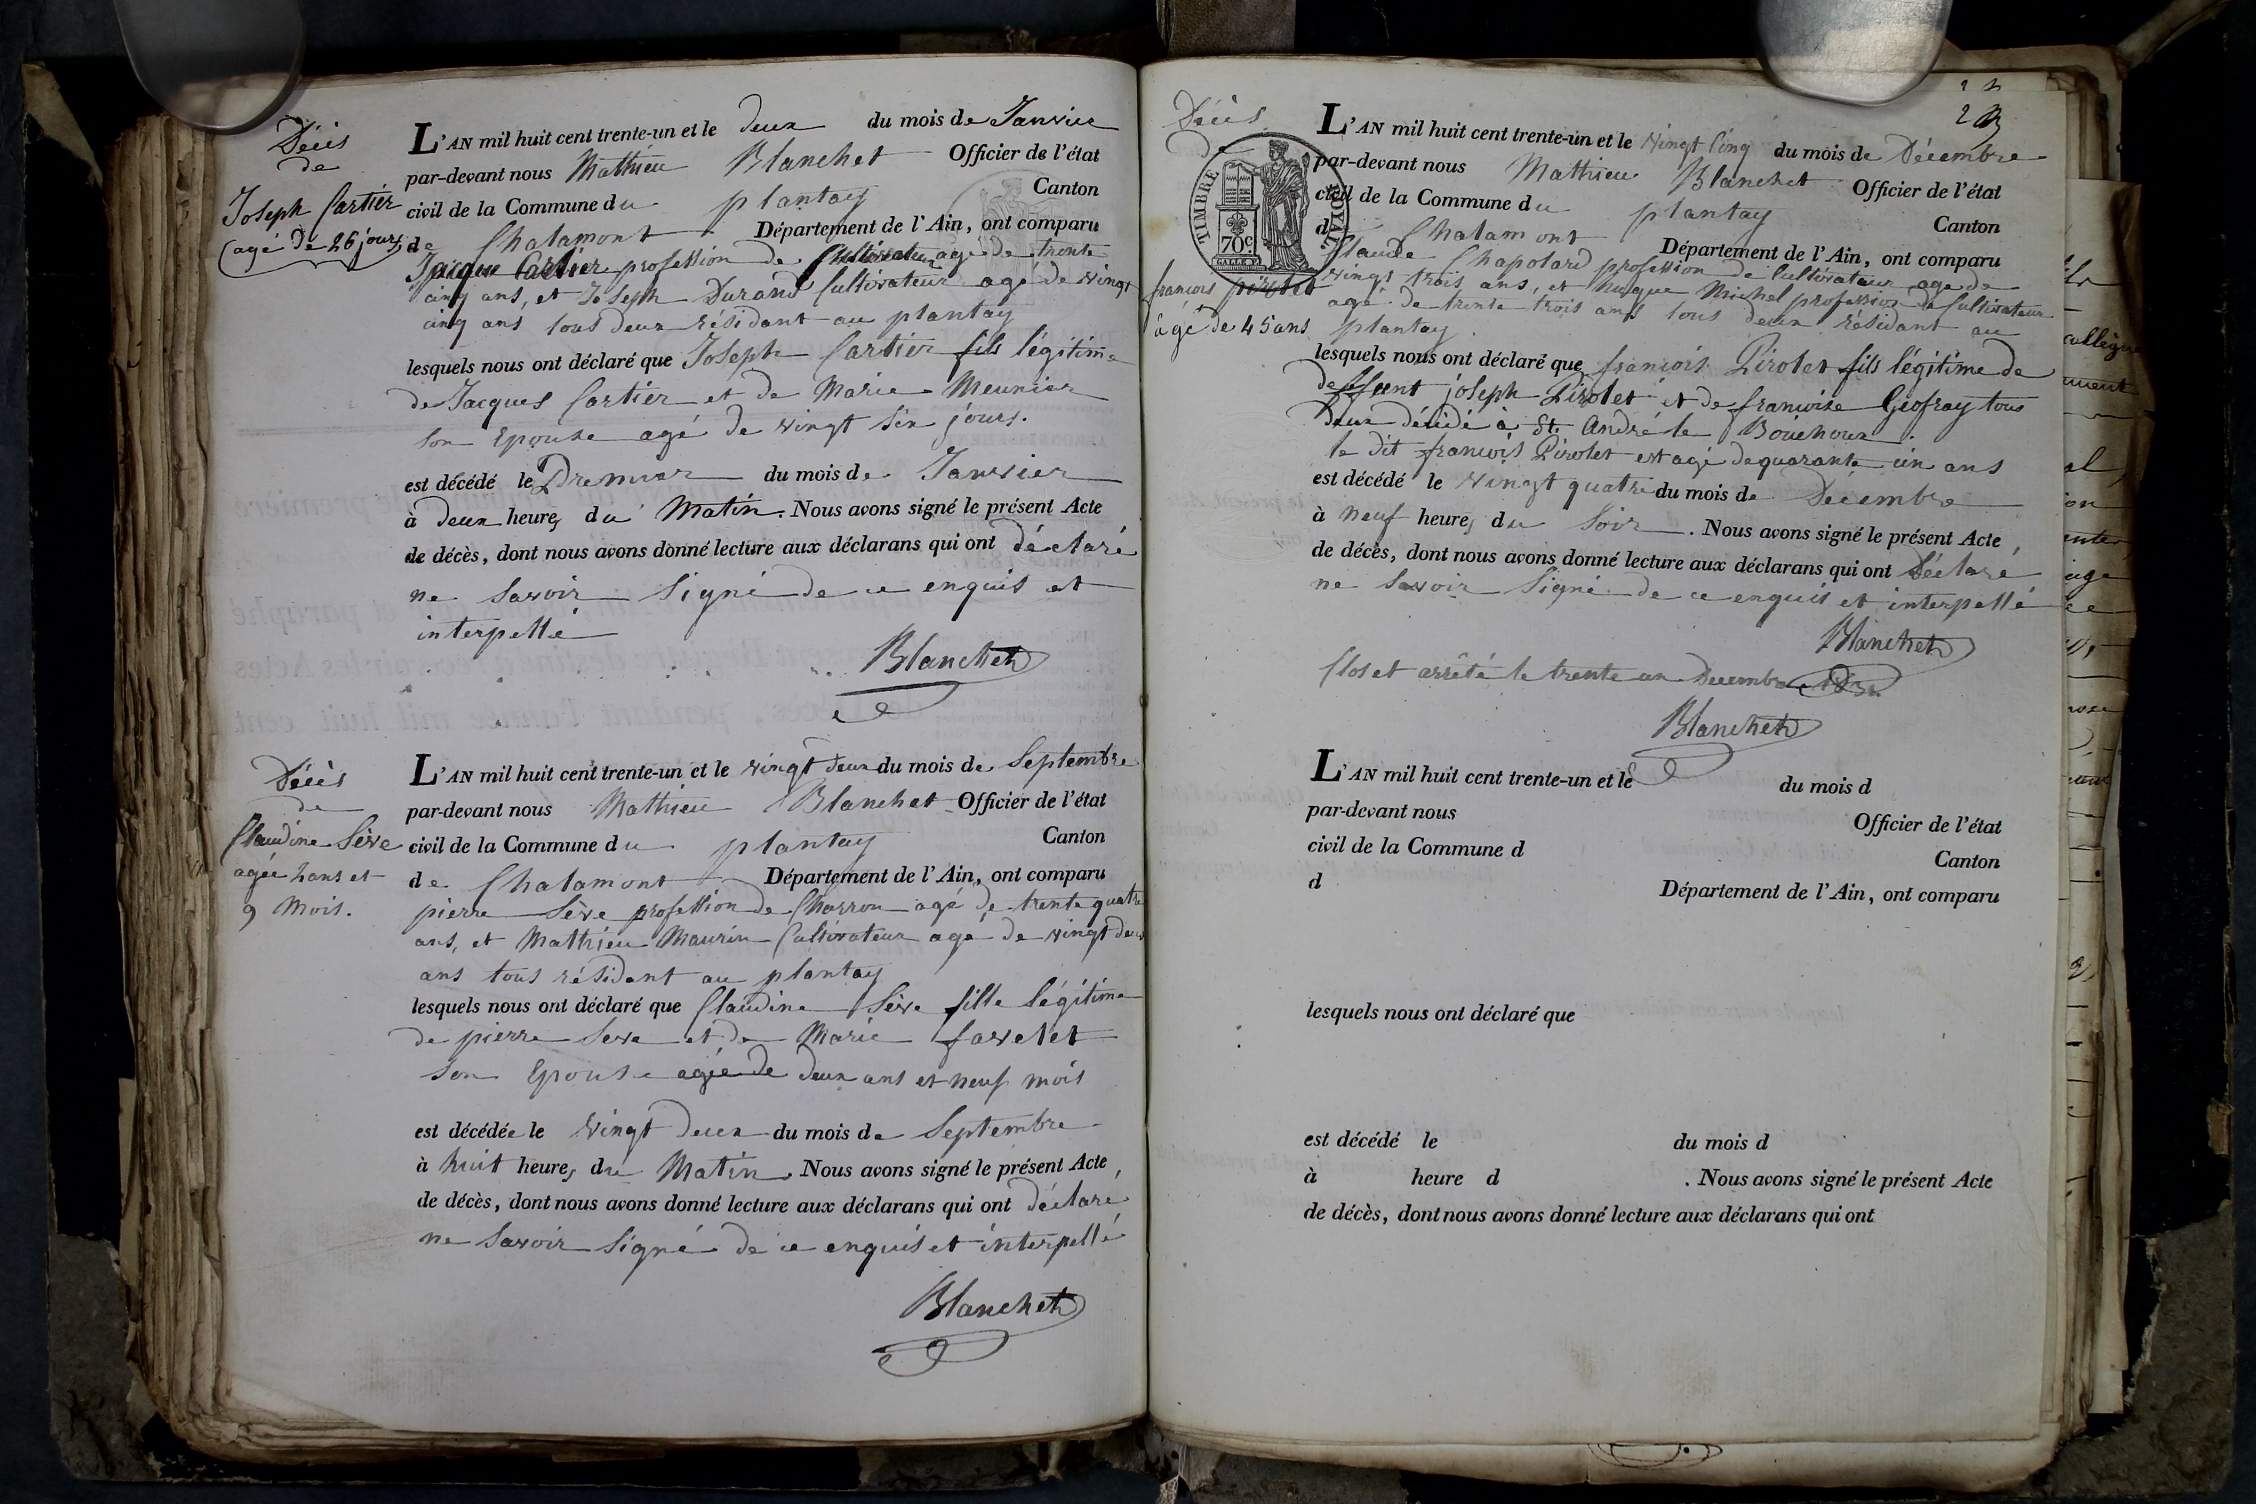 Décès
de
Joseph Cartier
(agé de 26 jours)
L'AN mil huit cent trente-un et le deux du mois de Janvier
par-devant nous Mathieu Blanchet Officier de l'état
civil de la Commune du plantay Canton
de Chalamont Département de l'Ain, ont comparu
Jacque Cartier profession de Cultivateur agé de trente
cinq ans, et Joseph Durand Cultivateur agé de vingt
cinq ans tous deux résidant au plantay
lesquels nous ont déclaré que Joseph Cartier fils légitime
de Jacques Cartier et de Marie Meunier
son Epouse agé de vingt six jours.
est décédé le Premier du mois de Janvier
à deux heures du Matin. Nous avons signé le présent Acte
de décès, dont nous avons donné lecture aux déclarans qui ont déclaré
ne Savoir Signé de ce enquis et
interpellé
Blanchet
Décès
de
Claudine Sève
agée 2 ans et
9 Mois.
L'AN mil huit cent trente-un et le vingt deux du mois de Septembre
par-devant nous Mathieu Blanchet Officier de l'état
civil de la Commune du plantay Canton
de Chalamont Département de l'Ain, ont comparu
pierre Sève profession de Charron agé de trente quatre
ans, et Mathieu Maurin Cultivateur agé de vingt deux
ans tous résidant au plantay
lesquels nous ont déclaré que Claudine Sève fille légitime
de pierre Seve et de Marie favelet
son Epouse agée de deux ans et neuf mois
est décédée le vingt deux du mois de Septembre
à huit heures du Matin. Nous avons signé le présent Acte
de décès, dont nous avons donné lecture aux déclarans qui ont déclaré
ne Savoir Signé de ce enquis et interpellé
Blanchet
23
Décès
de
françois pirolet
agé de 45 ans
TIMBRE ROYAL
70c.
L'AN mil huit cent trente-un et le vingt Cinq du mois de Décembre
par-devant nous Mathieu Blanchet Officier de l'état
civil de la Commune du plantay Canton
d Chalamont Département de l'Ain, ont comparu
Claude Chapolard profession de Cultivateur age de
vingt trois ans, et hugue Michel profession de Cultivateur
agé de trente trois ans tous deux résidant au
plantay.
lesquels nous ont déclaré que françois Pirolet fils légitime de
deffunt joseph Pirolet et de françoise Geofray tous
deux décédé à St André le Bouchoux.
le dit françois Pirolet est agé de quarante cin ans
est décédé le vingt quatre du mois de Décembre
à neuf heures du Soir. Nous avons signé le présent Acte
de décès, dont nous avons donné lecture aux déclarans qui ont Déclaré
ne Savoir Signé de ce enquis et interpellé
Blanchet
Clos et arrêté le trente un Decembre 1831
Blanchet
L'AN mil huit cent trente-un et le du mois d
par-devant nous Officier de l'état
civil de la Commune d Canton
d Département de l'Ain, ont comparu
lesquels nous ont déclaré que
est décédé le du mois d
à heure d . Nous avons signé le présent Acte
de décès, dont nous avons donné lecture aux déclarans qui ont